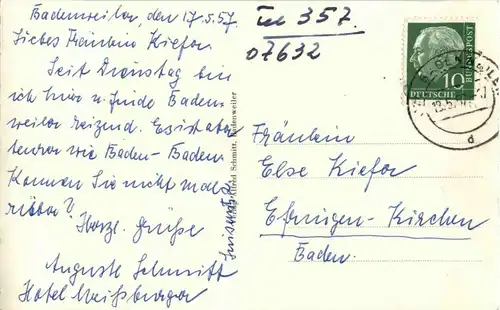 Badenweiler, den 17.5.57.
Liebes Fräulein Kiefer
Seit Dienstag bin
ich hier u. finde Baden-
weiler reizend. Es ist aber
teurer wie Baden-Baden.
Kommen Sie nicht mal
rüber?
Herzl. Grüße
Auguste Schmitt
Hotel Meißburger
357.
07632
Alfred Schmitz, Badenweiler
DEUTSCHE
BUNDESPOST
10
Fräulein
Else Kiefer
Efringen-Kirchen
Baden.